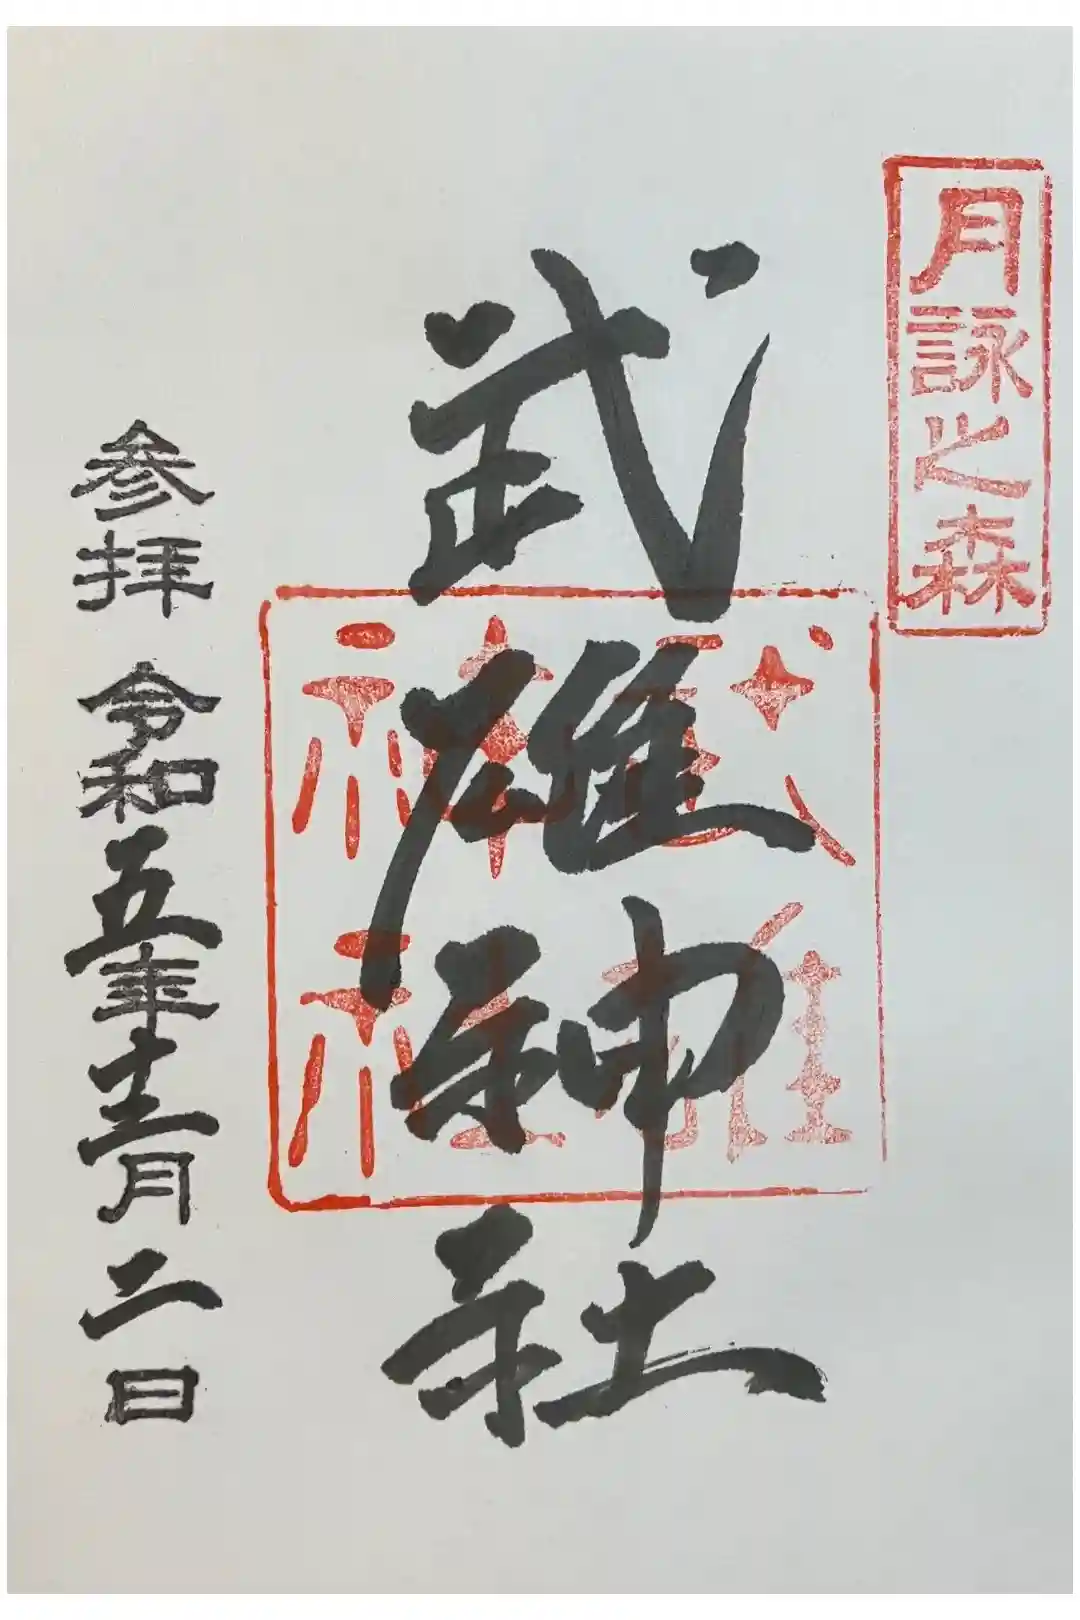 月詠之森
武雄神社
武雄
神社
参拝 令和五年十二月二日